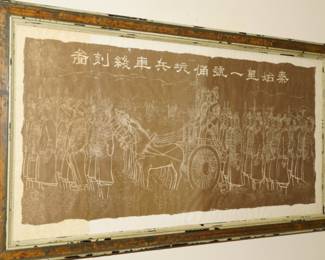 秦始皇一號俑坑兵車綫刻畫